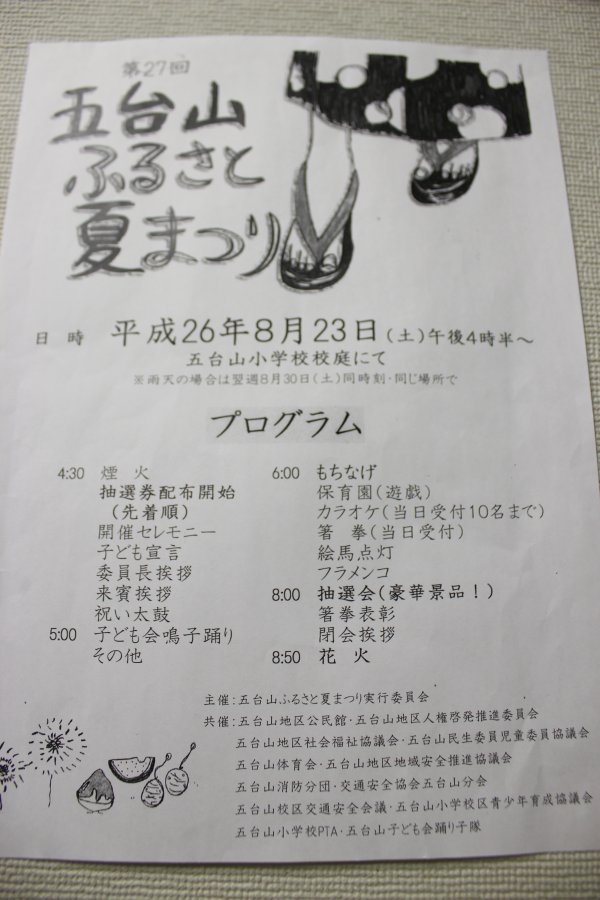 第27回
五台山
ふるさと
夏まつり
日 時 平成26年8月23日(土)午後4時半~
五台山小学校校庭にて
※雨天の場合は翌週8月30日(土)同時刻・同じ場所で
プログラム
4:30 煙 火
抽選券配布開始
(先着順)
開催セレモニー
子ども宣言
委員長挨拶
来賓挨拶
祝い太鼓
5:00 子ども会鳴子踊り
その他
6:00 もちなげ
保育園(遊戯)
カラオケ(当日受付10名まで)
箸 拳(当日受付)
絵馬点灯
フラメンコ
8:00 抽選会(豪華景品!)
箸拳表彰
閉会挨拶
8:50 花 火
主催:五台山ふるさと夏まつり実行委員会
共催:五台山地区公民館・五台山地区人権啓発推進委員会
五台山地区社会福祉協議会・五台山民生委員児童委員協議会
五台山体育会・五台山地区地域安全推進協議会
五台山消防分団・交通安全協会五台山分会
五台山校区交通安全会議・五台山小学校区青少年育成協議会
五台山小学校PTA・五台山子ども会踊り子隊